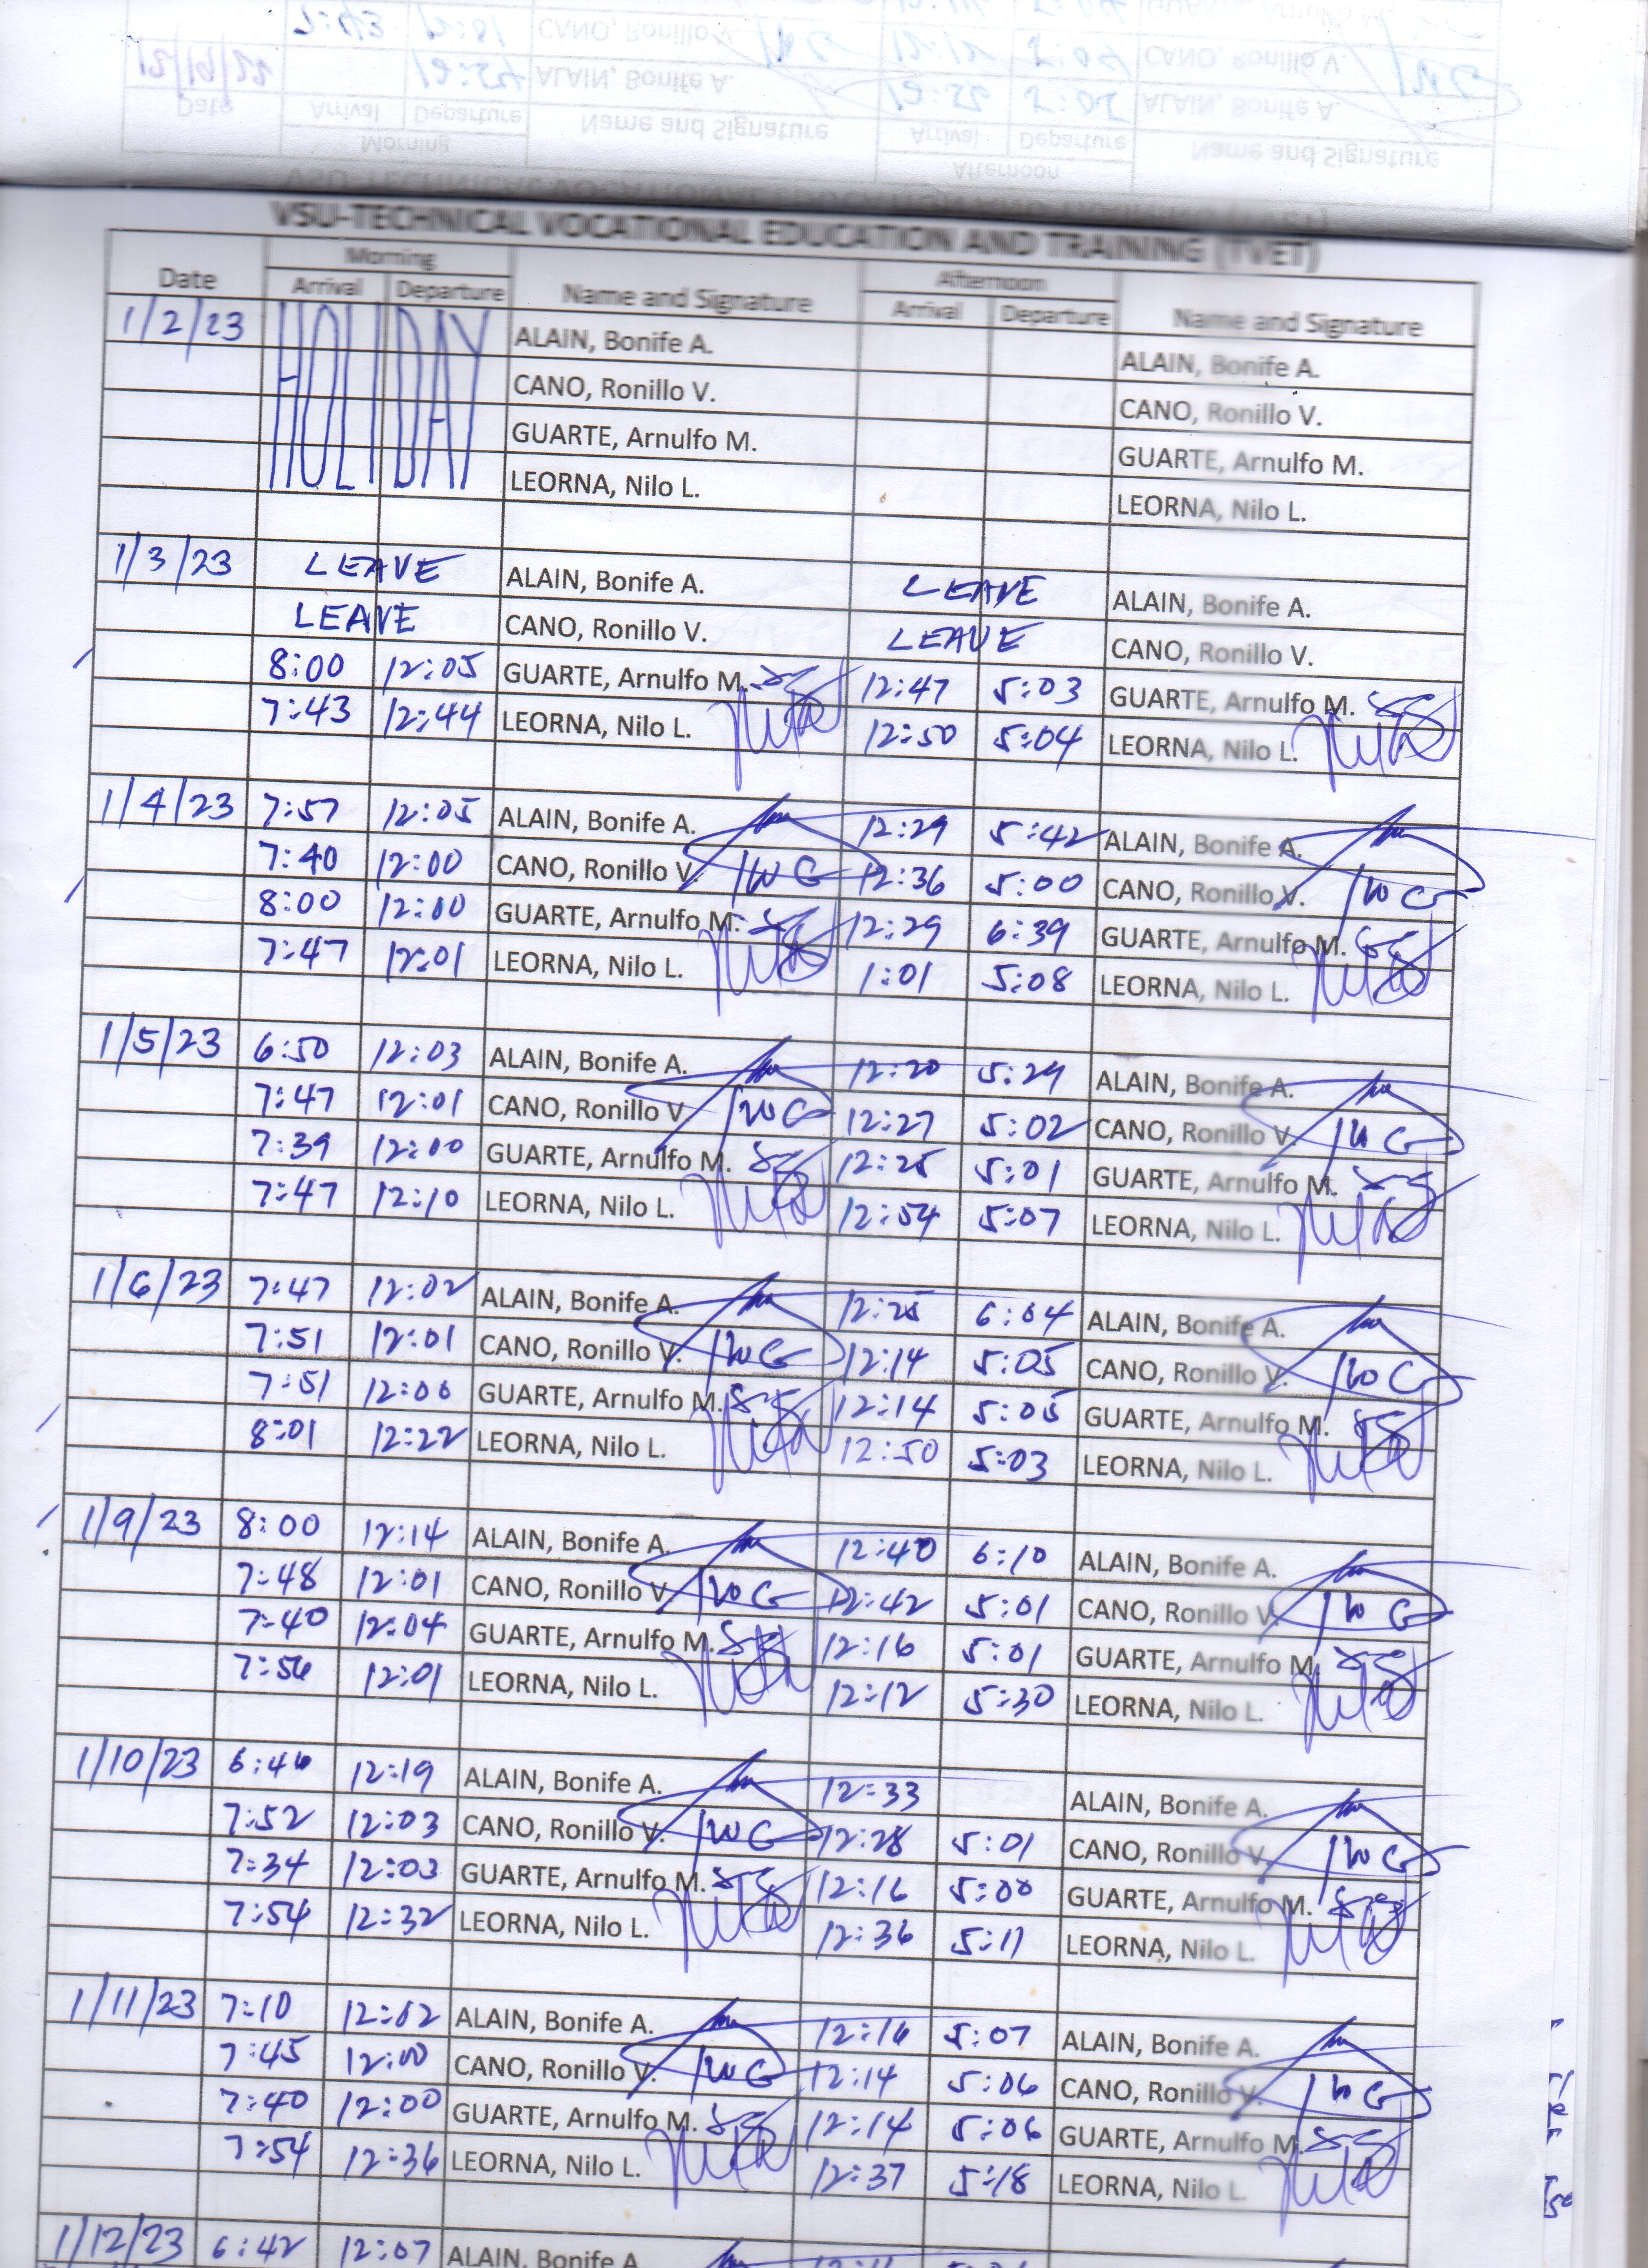 VSU-TECHNICAL VOCATIONAL EDUCATION AND TRAINING (TVET)
Date Morning Name and Signature Afternoon Name and Signature
Arrival Departure Arrival Departure
1/2/23 HOLIDAY ALAIN, Bonife A. ALAIN, Bonife A.
CANO, Ronillo V. CANO, Ronillo V.
GUARTE, Arnulfo M. GUARTE, Arnulfo M.
LEORNA, Nilo L. LEORNA, Nilo L.
1/3/23 LEAVE ALAIN, Bonife A. LEAVE ALAIN, Bonife A.
LEAVE CANO, Ronillo V. LEAVE CANO, Ronillo V.
8:00 12:05 GUARTE, Arnulfo M. 12:47 5:03 GUARTE, Arnulfo M.
7:43 12:44 LEORNA, Nilo L. 12:50 5:04 LEORNA, Nilo L.
1/4/23 7:57 12:05 ALAIN, Bonife A. 12:29 5:42 ALAIN, Bonife A.
7:40 12:00 CANO, Ronillo V. 12:36 5:00 CANO, Ronillo V.
8:00 12:00 GUARTE, Arnulfo M. 12:29 6:39 GUARTE, Arnulfo M.
7:47 12:01 LEORNA, Nilo L. 1:01 5:08 LEORNA, Nilo L.
1/5/23 6:50 12:03 ALAIN, Bonife A. 12:20 5:29 ALAIN, Bonife A.
7:47 12:01 CANO, Ronillo V 12:27 5:02 CANO, Ronillo V.
7:39 12:00 GUARTE, Arnulfo M. 12:25 5:01 GUARTE, Arnulfo M.
7:47 12:10 LEORNA, Nilo L. 12:54 5:07 LEORNA, Nilo L.
1/6/23 7:47 12:02 ALAIN, Bonife A. 12:25 6:04 ALAIN, Bonife A.
7:51 12:01 CANO, Ronillo V. 12:14 5:05 CANO, Ronillo V.
7:51 12:00 GUARTE, Arnulfo M. 12:14 5:05 GUARTE, Arnulfo M.
8:01 12:22 LEORNA, Nilo L. 12:50 5:03 LEORNA, Nilo L.
1/9/23 8:00 12:14 ALAIN, Bonife A. 12:40 6:10 ALAIN, Bonife A.
7:48 12:01 CANO, Ronillo V 12:42 5:01 CANO, Ronillo V.
7:40 12:04 GUARTE, Arnulfo M. 12:16 5:01 GUARTE, Arnulfo M.
7:56 12:01 LEORNA, Nilo L. 12:12 5:30 LEORNA, Nilo L.
1/10/23 6:46 12:19 ALAIN, Bonife A. 12:33 ALAIN, Bonife A.
7:52 12:03 CANO, Ronillo V. 12:28 5:01 CANO, Ronillo V.
7:34 12:03 GUARTE, Arnulfo M. 12:16 5:00 GUARTE, Arnulfo M.
7:54 12:32 LEORNA, Nilo L. 12:36 5:11 LEORNA, Nilo L.
1/11/23 7:10 12:02 ALAIN, Bonife A. 12:16 5:07 ALAIN, Bonife A.
7:45 12:00 CANO, Ronillo V. 12:14 5:06 CANO, Ronillo V.
7:40 12:00 GUARTE, Arnulfo M. 12:14 5:06 GUARTE, Arnulfo M.
7:54 12:36 LEORNA, Nilo L. 12:37 5:18 LEORNA, Nilo L.
1/12/23 6:42 12:07 ALAIN, Bonife A